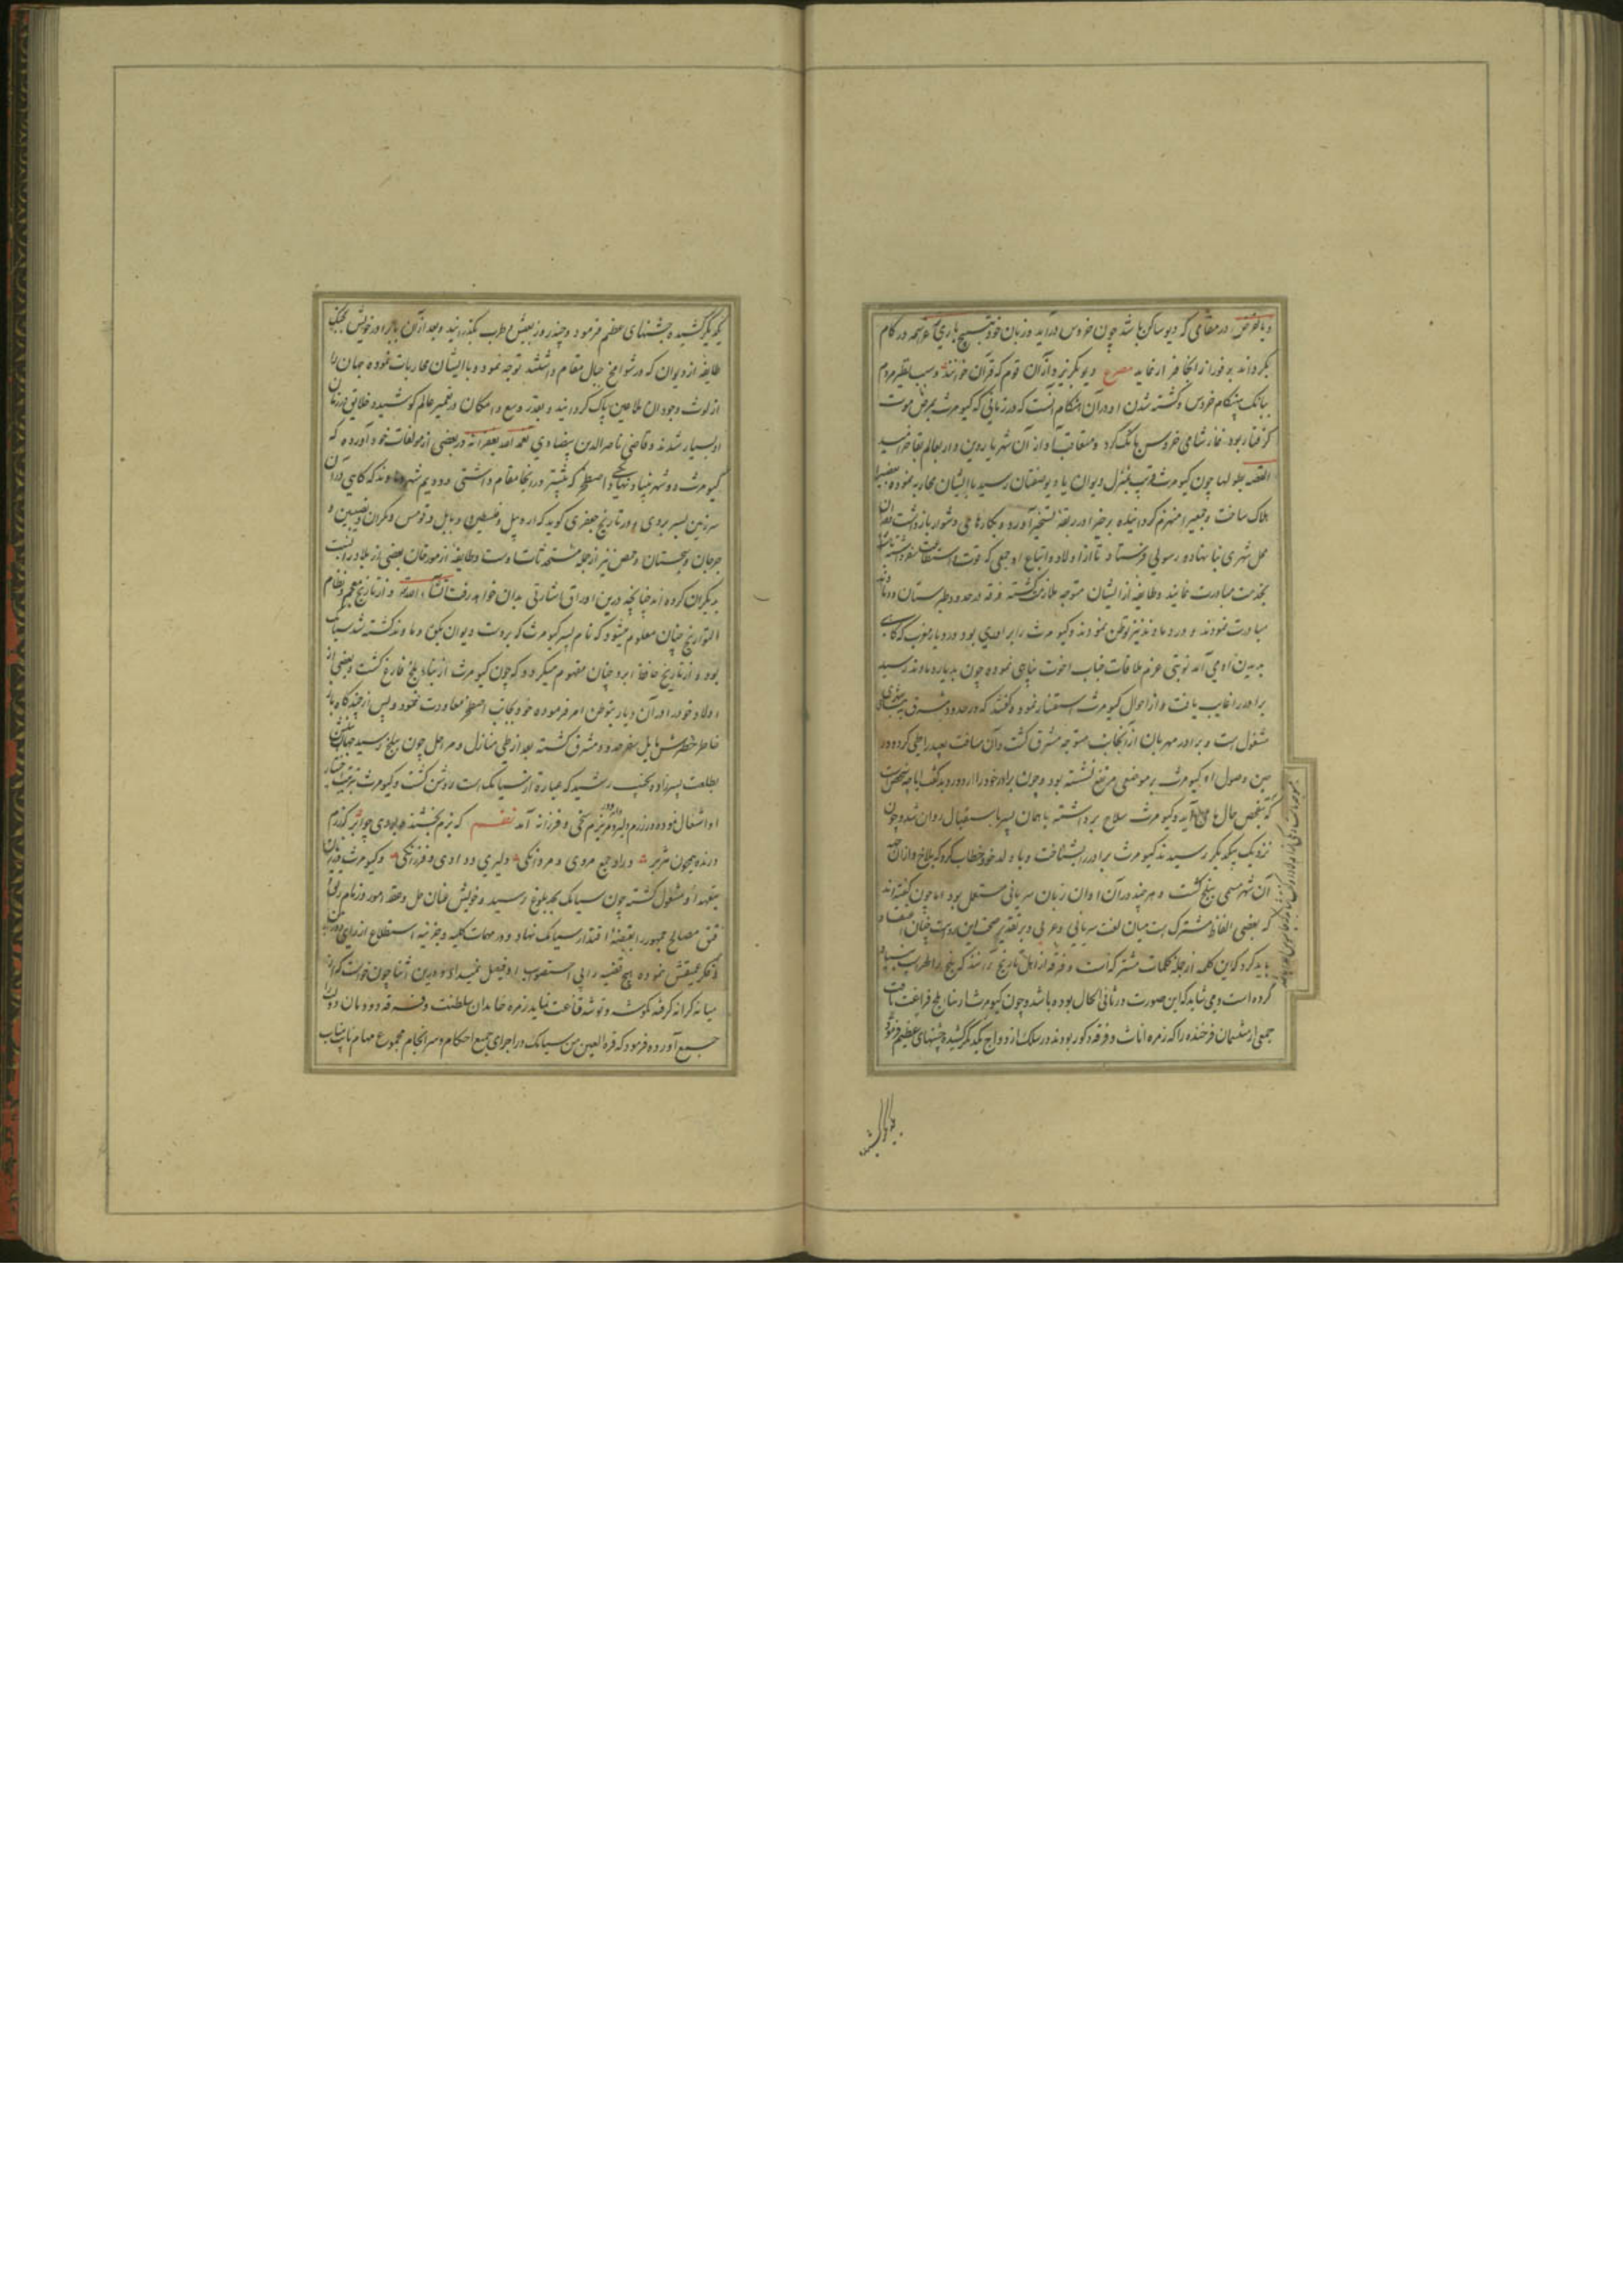 و بالفرض در مقامی که دیو ساکن باشد چون خروس درآید و زبان خود بتسبیح باری عز اسمه در کام
بگرداند بر فور از انجا فرار نماید مصرع دیو بگریزد از آن قوم که قرآن خوانند و سبب تطیر مردم
ببانک بیهنگام خروس و کشته شدن او در آن هنگام آنست که در زمانی که کیومرث بمرض موت
گرفتار بود نماز شامی خروس بانگ کرد و متعاقب آواز آن شهریار روین دار بعالم بقا خرامید
القصه بطولها چون کیومرث قریب بمنزل دیوان یا دیو صفتان رسید با ایشان محاربه نموده بعضی را
هلاک ساخت و جمعی را منهزم گردانیده برخی را در ربقه تسخیر آورده بکارهای دشوار بازداشت و در آن
محل شهری بنا نهاده رسولی فرستاد تا از اولاد و اتباع او جمعی که قوت و استطاعت سفر داشته باشند
بخدمت مبادرت نمایند و طایفه از ایشان متوجه ملازمت گشته فرقه در حدود طبرستان و دماوند
مبادرت نمودند و در دماوند نیز توطن نمودند و کیومرث را برادری بود در دیار مغرب که گاهی
بدیدن او می آمد نوبتی عزم ملاقات جناب اخوت پناهی نموده چون بدیار دماوند رسید
برادر را غایب یافت و از احوال کیومرث استفسار نمود گفتند که در حدود مشرق به بنای شهری
مشغول است و برادر مهربان از آنجانب متوجه مشرق گشت و آن مسافت بعید را طی کرده در
حین وصول او کیومرث بر موضعی مرتفع نشسته بود و چون برادر خود را از دور دید گفت آیا چه شخص است
که بتفحص حال ما می آید و کیومرث سلاح برداشته با همان پسر باستقبال روان شد و چون
نزدیک یکدیگر رسیدند کیومرث برادر را بشناخت و با ولد خود خطاب کرد که بل اخ و از آن جهة
آن شهر مسمی ببلخ گشت و هر چند در آن اوان زبان سریانی مستعمل بود اما چون گفته اند
که بعضی الفاظ مشترک است میان لغت سریانی و عربی و بر تقدیر صحت این روایت چنان اعتقاد
باید کرد که این کلمه از جمله کلمات مشترکه است و فرقه از اهل تاریخ برآنند که بلخ را لهراسب بنیاد
کرده است و می شاید که این صورت در ثانی الحال بوده باشد و چون کیومرث را از بنای بلخ فراغت یافت
جمعی از منتسبان فرخنده را که زمره اناث و فرقه ذکور بودند در سلک ازدواج یکدیگر کشیده جشنهای عظیم فرمود
یکدیگر کشیده جشنهای عظیم فرمود و چند روز بعیش و طرب بگذرانید و بعد از آن با برادر خویش بجنگ
طایفه از دیوان که در شوامخ جبال مقام داشتند توجه نمود و با ایشان محاربات نموده جهان را
از لوث وجود آن ملاعین پاک گردانید و بقدر وسع و امکان در تعمیر عالم کوشیده خلایق در زمان
او بسیار شدند و قاضی ناصرالدین بیضاوی تغمده الله بغفرانه در بعضی از مولفات خود آورده که
کیومرث دو شهر بنیاد نهاد یکی اصطخر که بیشتر در انجا مقام داشتی و دویم شهر دماوند که گاهی در آن
سرزمین بسر بردی و در تاریخ جعفری گوید که اردبیل و فلسطین و بابل و قومس و مکران و نصیبین و
جرجان و سجستان و حمص نیز از جمله مستحدثات اوست و طایفه از مورخان بعضی از بلاد را نسبت
بدیگران کرده اند چنانچه درین اوراق اشارتی بدان خواهد رفت انشاء الله و از تاریخ معجم و نظام
التواریخ چنان معلوم میشود که نام پسر کیومرث که بر دست دیوان بکوه دماوند کشته شد سیامک
بود و از تاریخ حافظ ابرو چنان مفهوم میگردد که چون کیومرث از بنیاد بلخ فارغ گشت و بعضی از
اولاد خود را در آن دیار بتوطن امر فرموده خود بجانب اصطخر معاودت نمود و پس از چندگاه باز
خاطر خطیرش مایل بسفر حدود مشرق گشته بعد از طی منازل و مراحل چون ببلخ رسید جهان بینش
بطلعت پسرزاده نجیب رشید که عبارة از سیامک است روشن گشت و کیومرث بتربیت
او اشتغال نموده در رزم دلیر و در بزم سخی و فرزانه آمد نظم که بزم بخشنده بودی چو ابر که رزم
درنده همچون هژبر در او جمع مردی و مردانگی دلیری و رادی و فرزانگی و کیومرث در آن
بتعهد او مشغول گشته چون سیامک بحد بلوغ رسید و خویش عنان حل و عقد امور و زمام رتق و
فتق مصالح جمهور را بقبضه اقتدار سیامک نهاد و در مهمات کلیه و جزئیه استطلاع از رای
و فکر عمیقش نموده هیچ قضیه را بی استصواب او فیصل نمیداد و درین اثنا چون خواست که از
میانه کرانه گرفته بگوشه و توشه قناعت نماید زمره خاندان سلطنت و فرقه دودمان دولت را
جمع آورده فرمود که قرة العین من سیامک در اجرای جمیع احکام و سرانجام مجموع مهام نایب مناب